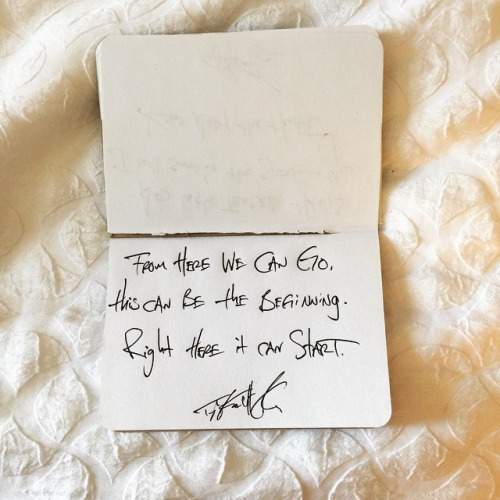 From HERE WE CAN GO,
this CAN BE the BEGiNNiNG.
Right HERE it CAN START.